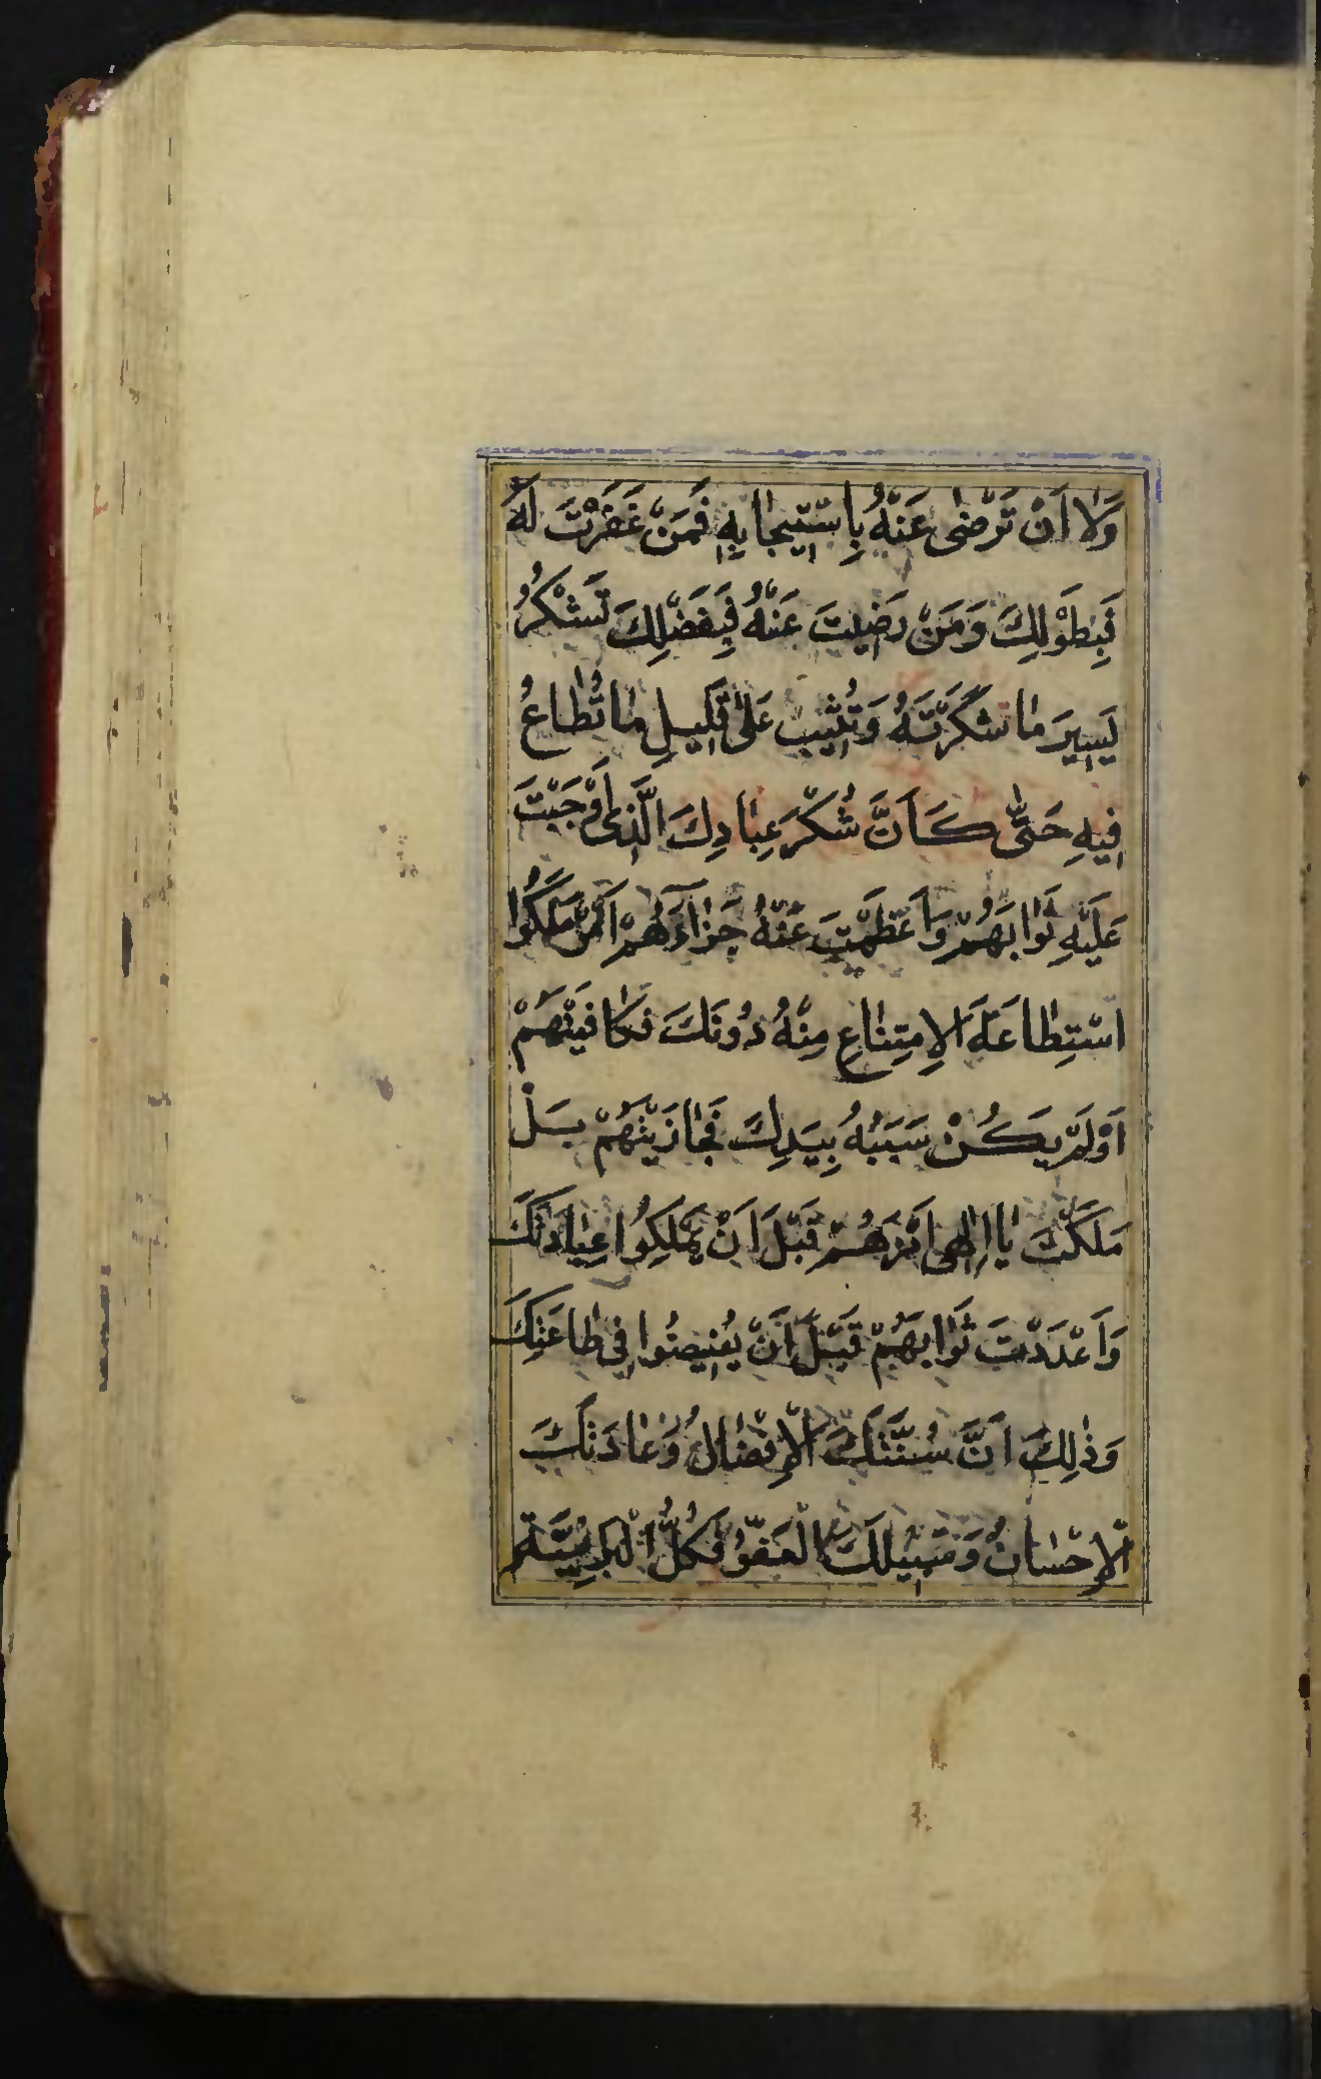 وَلَا اَنْ تَرْضٰى عَنْهُ بِاسْتِيجٰابِهِ فَمَنْ غَفَرْتَ لَهُ
فَبِطَوْلِكَ وَمَنْ رَضِيتَ عَنْهُ فَبِفَضْلِكَ تَشْكُرُ
يَسِيرَ مٰا شَكَرْتَهُ وَتُثِيبُ عَلٰى قَلِيلِ مٰا تُطٰاعُ
فِيهِ حَتّٰى كَاَنَّ شُكْرَ عِبٰادِكَ الَّذِى اَوْجَبْتَ
عَلَيْهِ ثَوٰابَهُمْ وَاَعْظَمْتَ عَنْهُ جَزٰاءَهُمْ اَمْرٌ مَلَكُوا
اسْتِطٰاعَةَ الِامْتِنٰاعِ مِنْهُ دُونَكَ فَكٰافَيْتَهُمْ
اَوْ لَمْ يَكُنْ سَبَبُهُ بِيَدِكَ فَجٰازَيْتَهُمْ بَلْ
مَلَكْتَ يٰا اِلٰهِى اَمْرَهُمْ قَبْلَ اَنْ يَمْلِكُوا عِبٰادَتَكَ
وَاَعْدَدْتَ ثَوٰابَهُمْ قَبْلَ اَنْ يُفِيضُوا فِى طٰاعَتِكَ
وَذٰلِكَ اَنَّ سُنَّتَكَ الْاِفْضٰالُ وَعٰادَتَكَ
الْاِحْسٰانُ وَسَبِيلَكَ الْعَفْوُ فَكُلُّ الْبَرِيَّةِ